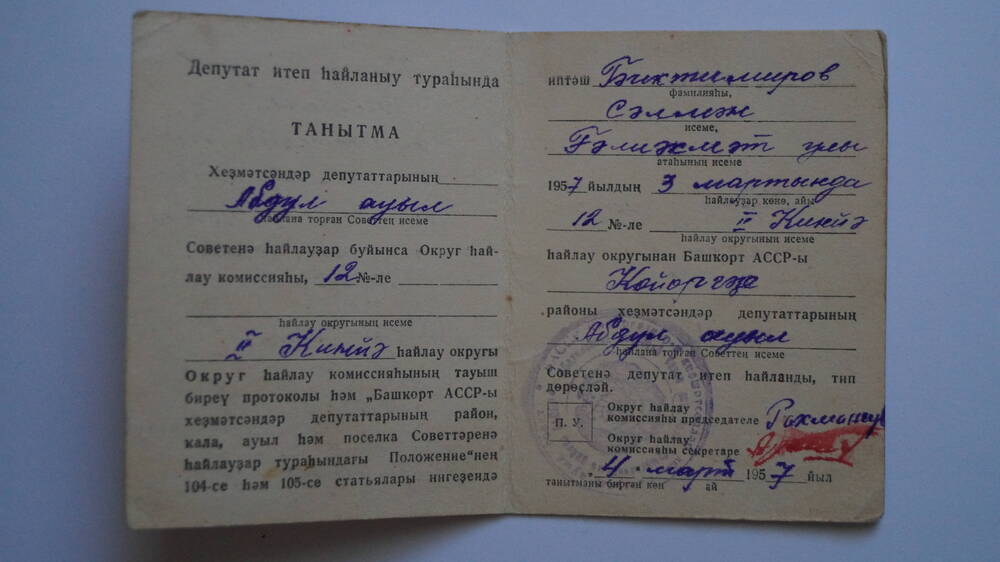 Депутат итеп һайланыу тураһында
ТАНЫТМА
Хеҙмәтсәндәр депутаттарының
Абдул ауыл
һайлана торған Советтең исеме
Советенә һайлауҙар буйынса Округ һай-
лау комиссияһы, 12 №-ле
һайлау округының исеме
II Кинйә һайлау округы
Округ һайлау комиссияһының тауыш
биреү протоколы һәм „Башкорт АССР-ы
хеҙмәтсәндәр депутаттарының район,
кала, ауыл һәм поселка Советтәренә
һайлауҙар тураһындағы Положение“нең
104-се һәм 105-се статьялары нигеҙендә
иптәш Биктимиров
фамилияһы,
Сәлмән
исеме,
Ғәлиәхмәт улы
атаһының исеме
1957 йылдың 3 мартында
һайлауҙар көнө, айы
12 №-ле II Кинйә
һайлау округының исеме
һайлау округынан Башкорт АССР-ы
Көйөргәҙе
районы хеҙмәтсәндәр депутаттарының
Абдул ауыл
һайлана торған Советтең исеме
Советенә депутат итеп һайланды, тип
дөрөҫләй.
П. У.
Округ һайлау
комиссияһы председателе Рахманғул
Округ һайлау
комиссияһы секретаре
4 март 1957 йыл
танытманы биргән көн ай